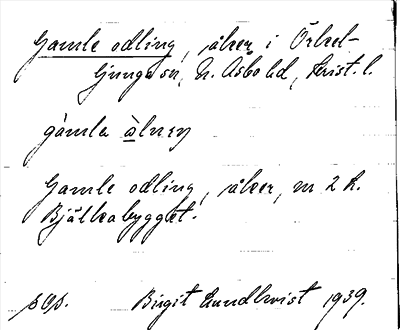 Gamle odling, åker i Örkel-
ljunga sn, N. Åsbo hd, Krist. l.
gàmla àlnɪŋ
Gamle odling, åker, n 2 k.
Bjälkabygget.
pop. Birgit Lundkvist 1939.